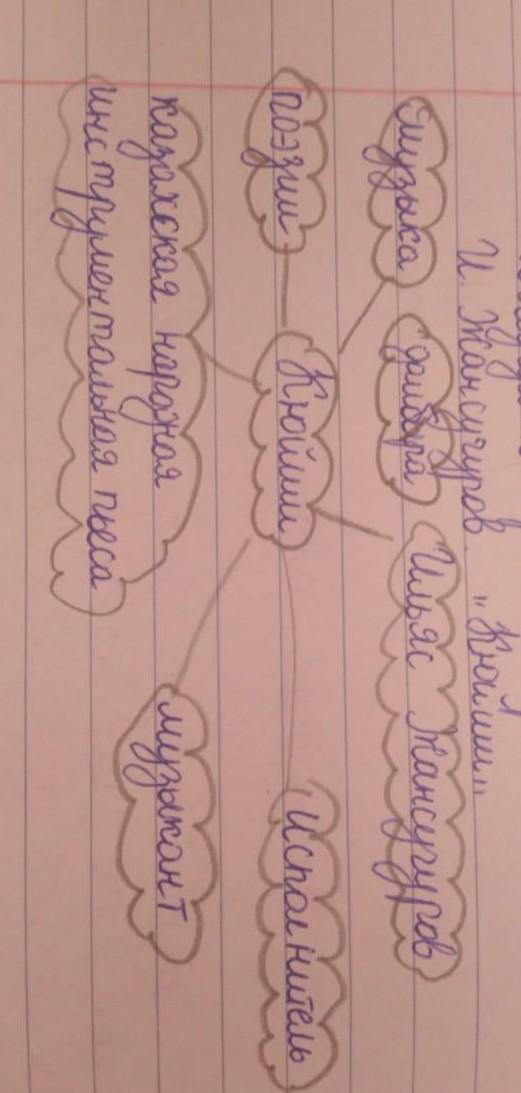 И. Жансугуров. "Кюйши"
музыка
домбра
Ильяс Жансугуров
поэзии
Кюйши
Исполнитель
казахская народная
инструментальная пьеса
музыкант